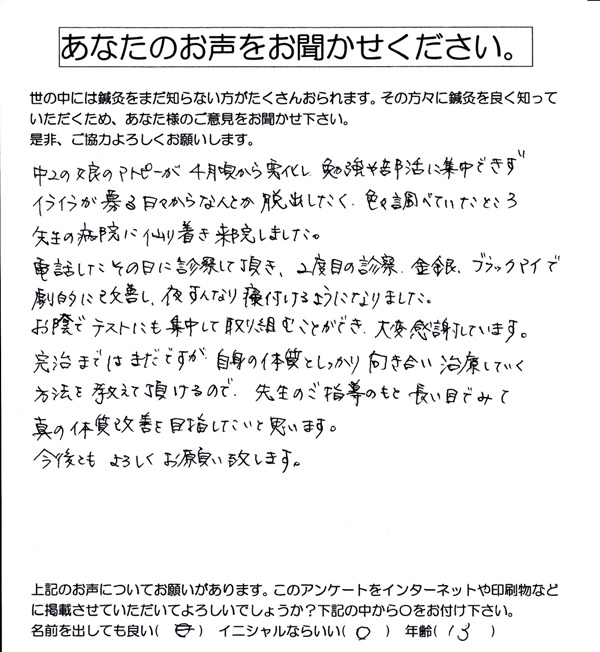 あなたのお声をお聞かせください。
世の中には鍼灸をまだ知らない方がたくさんおられます。その方々に鍼灸を良く知って
いただくため、あなた様のご意見をお聞かせ下さい。
是非、ご協力よろしくお願いします。
中2の娘のアトピーが 4月頃から悪化し 勉強や部活に集中できず
イライラが募る日々からなんとか 脱出したく、色々調べていたところ
先生の病院に辿り着き 来院しました。
電話したその日に診察して頂き、2度目の診察、金銀、ブラックアイで
劇的に改善し、夜すんなり寝付けるようになりました。
お陰でテストにも集中して取り組むことができ、大変感謝しています。
完治まではまだですが 自身の体質としっかり 向き合い 治療していく
方法を教えて頂けるので、先生のご指導のもと 長い目でみて
真の体質改善を目指したいと思います。
今後とも よろしく お願い致します。
上記のお声についてお願いがあります。このアンケートをインターネットや印刷物など
に掲載させていただいてよろしいでしょうか？下記の中から〇をお付け下さい。
名前を出しても良い( ) イニシャルならいい( 〇 ) 年齢( 13 )